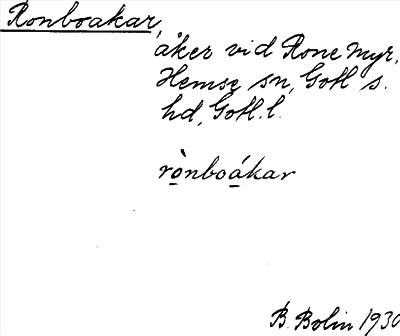 Ronboakar,
åker vid Rone myr,
Hemse sn, Gotl. s.
hd, Gotl. l.
rò̲nboá̲kar
B. Bolin 1930